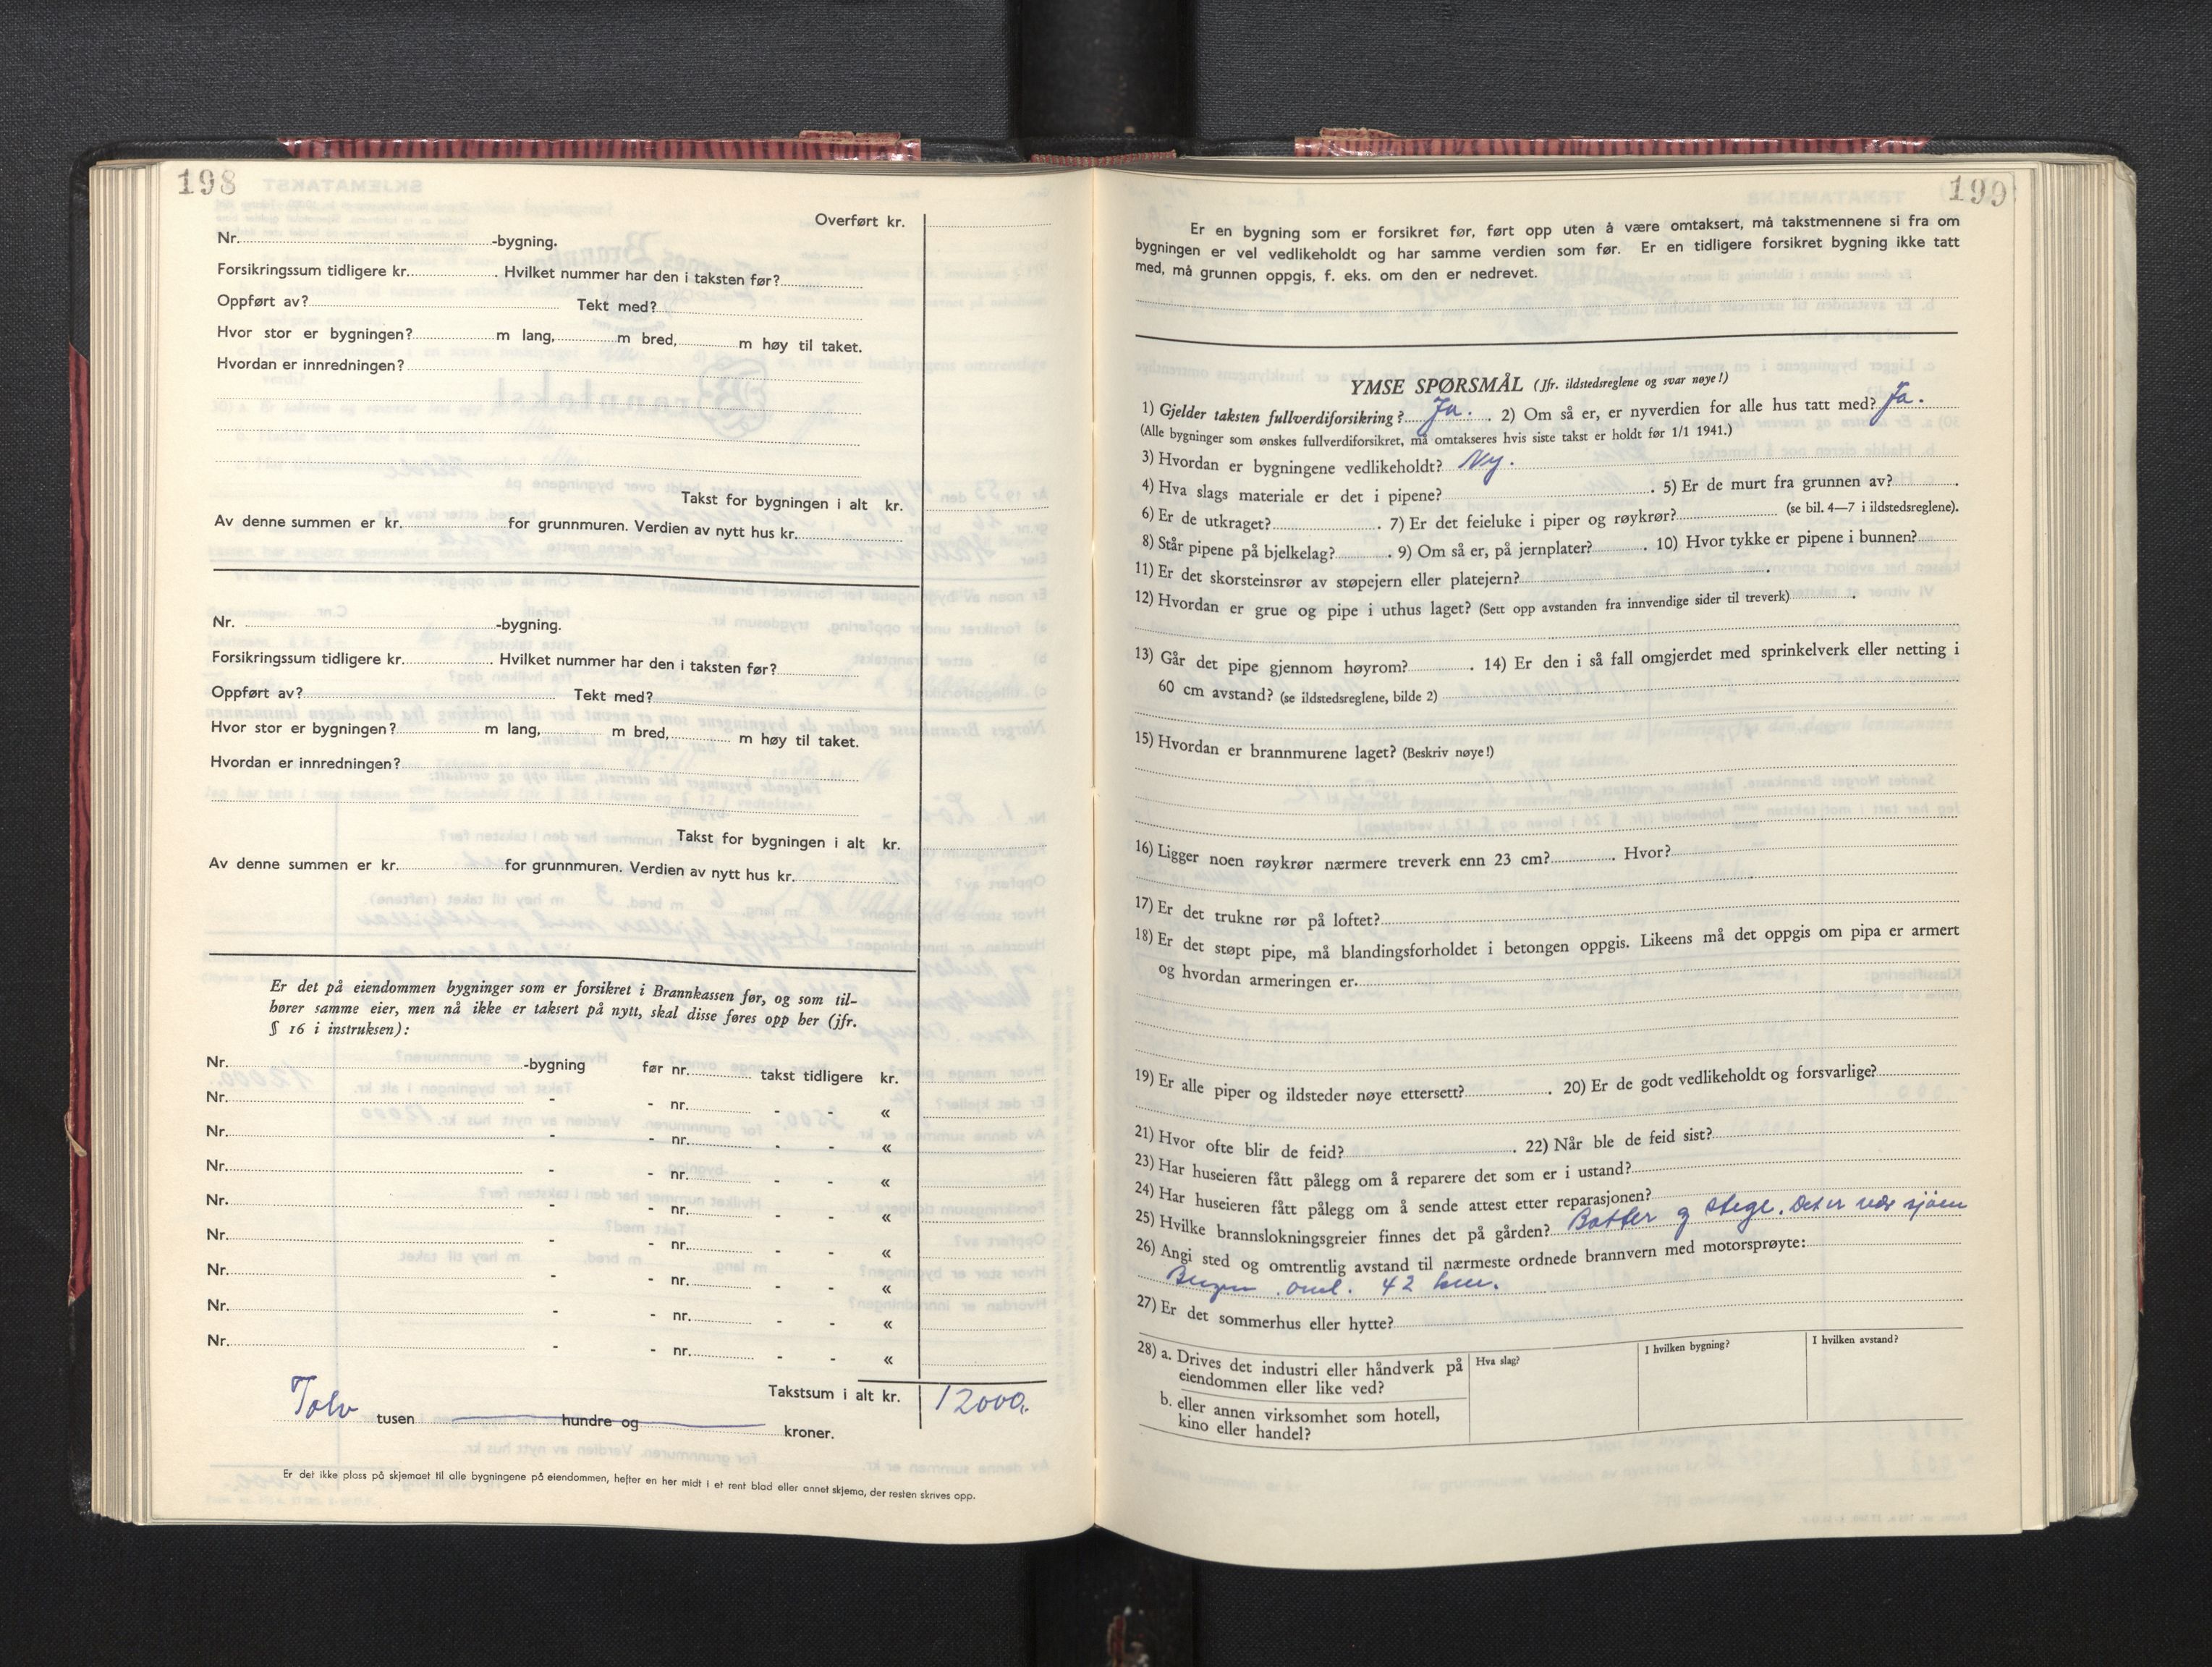 198
Overført kr.
Nr. -bygning.
Forsikringssum tidligere kr. . Hvilket nummer har den i taksten før?
Oppført av? Tekt med?
Hvor stor er bygningen? m lang, m bred, m høy til taket.
Hvordan er innredningen?
Takst for bygningen i alt kr.
Av denne summen er kr. for grunnmuren. Verdien av nytt hus kr.
Nr. -bygning.
Forsikringssum tidligere kr. . Hvilket nummer har den i taksten før?
Oppført av? Tekt med?
Hvor stor er bygningen? m lang, m bred, m høy til taket.
Hvordan er innredningen?
Takst for bygningen i alt kr.
Av denne summen er kr. for grunnmuren. Verdien av nytt hus kr.
Er det på eiendommen bygninger som er forsikret i Brannkassen før, og som til-
hører samme eier, men nå ikke er taksert på nytt, skal disse føres opp her (jfr.
§ 16 i instruksen):
Nr. -bygning før nr. takst tidligere kr.
Nr. - - nr. - - «
Nr. - - nr. - - «
Nr. - - nr. - - «
Nr. - - nr. - - «
Nr. - - nr. - - «
Nr. - - nr. - - «
Nr. - - nr. - - «
Nr. - - nr. - - «
Takstsum i alt kr. 12000,-
Tolv tusen hundre og kroner.
Er det ikke plass på skjemaet til alle bygningene på eiendommen, hefter en her midt i et rent blad eller annet skjema, der resten skrives opp.
199
Er en bygning som er forsikret før, ført opp uten å være omtaksert, må takstmennene si fra om
bygningen er vel vedlikeholdt og har samme verdien som før. Er en tidligere forsikret bygning ikke tatt
med, må grunnen oppgis, f. eks. om den er nedrevet.
YMSE SPØRSMÅL (Jfr. ildstedsreglene og svar nøye!)
1) Gjelder taksten fullverdiforsikring? Ja. . 2) Om så er, er nyverdien for alle hus tatt med? Ja.
(Alle bygninger som ønskes fullverdiforsikret, må omtakseres hvis siste takst er holdt før 1/1 1941.)
3) Hvordan er bygningene vedlikeholdt? Ny.
4) Hva slags materiale er det i pipene? . 5) Er de murt fra grunnen av? .
6) Er de utkraget? . 7) Er det feieluke i piper og røykrør? (se bil. 4—7 i ildstedsreglene).
8) Står pipene på bjelkelag? . 9) Om så er, på jernplater? . 10) Hvor tykke er pipene i bunnen?
11) Er det skorsteinsrør av støpejern eller platejern? .
12) Hvordan er grue og pipe i uthus laget? (Sett opp avstanden fra innvendige sider til treverk) .
13) Går det pipe gjennom høyrom? . 14) Er den i så fall omgjerdet med sprinkelverk eller netting i
60 cm avstand? (se ildstedsreglene, bilde 2)
15) Hvordan er brannmurene laget? (Beskriv nøye!)
16) Ligger noen røykrør nærmere treverk enn 23 cm? . Hvor?
17) Er det trukne rør på loftet?
18) Er det støpt pipe, må blandingsforholdet i betongen oppgis. Likeens må det oppgis om pipa er armert
og hvordan armeringen er.
19) Er alle piper og ildsteder nøye ettersett? . 20) Er de godt vedlikeholdt og forsvarlige?
21) Hvor ofte blir de feid? . 22) Når ble de feid sist?
23) Har huseieren fått pålegg om å reparere det som er i ustand?
24) Har huseieren fått pålegg om å sende attest etter reparasjonen?
25) Hvilke brannslokningsgreier finnes det på gården? Bøtter og stege. Det er ved sjøen
26) Angi sted og omtrentlig avstand til nærmeste ordnede brannvern med motorsprøyte:
Bergen. oml. 42 km.
27) Er det sommerhus eller hytte?
28) a. Drives det industri eller håndverk på
eiendommen eller like ved?
b. eller annen virksomhet som hotell,
kino eller handel?
Hva slag?
I hvilken bygning?
I hvilken avstand?